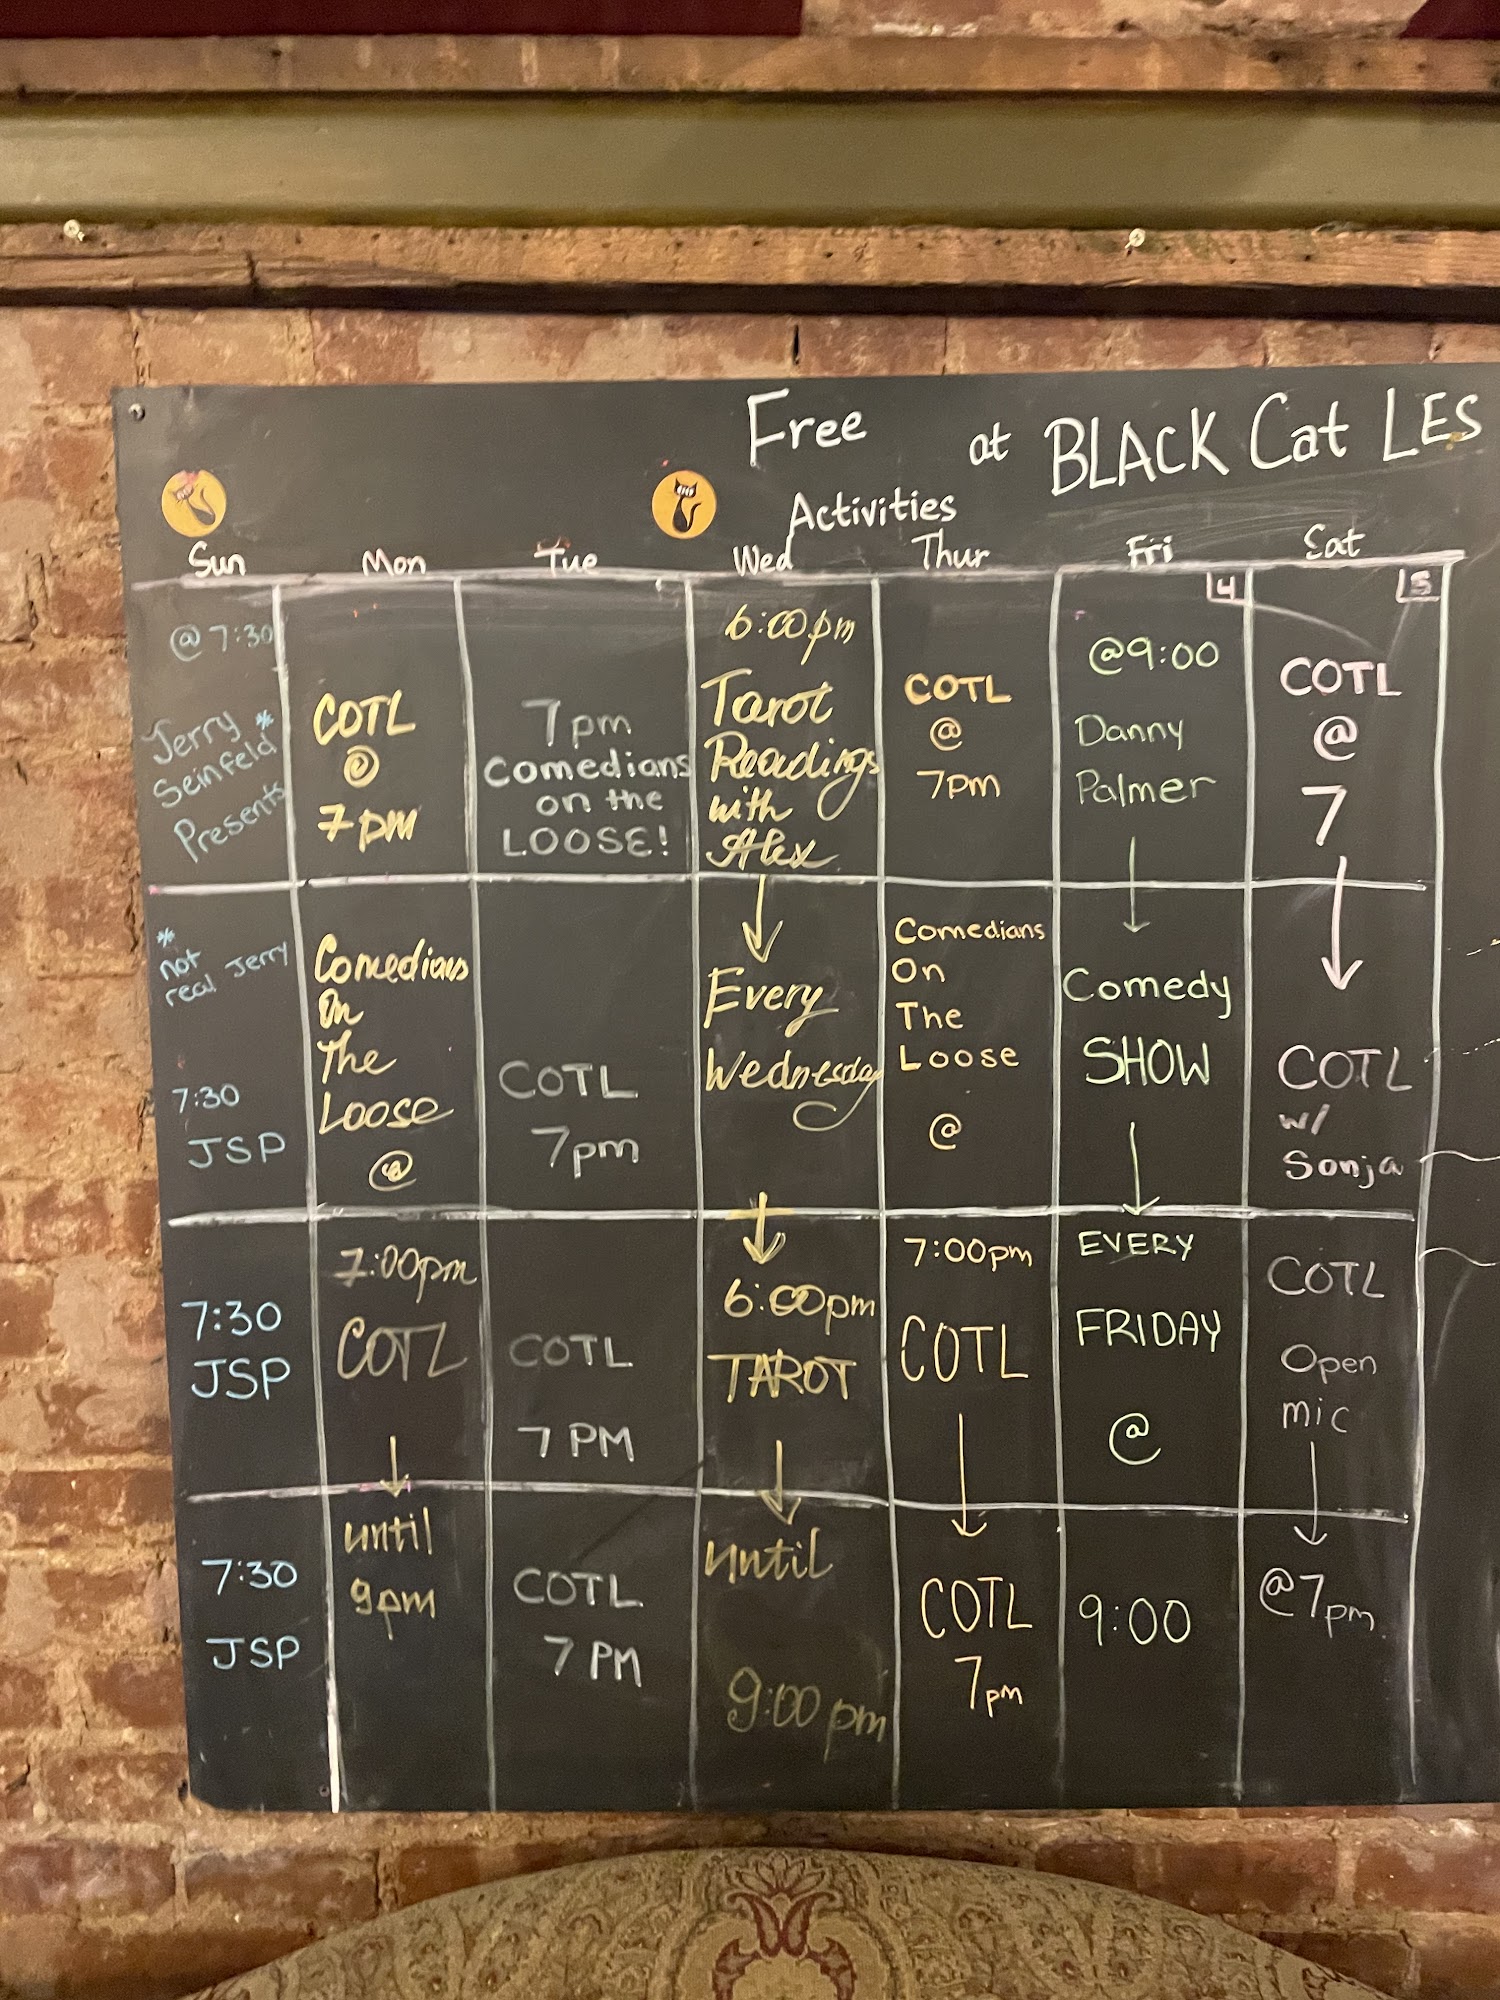 Free at BLACK Cat LES
Activities
Sun Mon Tue Wed Thur Fri Sat
4
5
@ 7:30
Jerry *
Seinfeld
Presents
COTL
@
7pm
7pm
Comedians
on the
LOOSE!
6:00pm
Tarot
Readings
with
Alex
COTL
@
7pm
@9:00
Danny
Palmer
COTL
@
7
*
not
real Jerry
7:30
JSP
Comedians
On
The
Loose
@
COTL
7pm
Every
Wednesday
Comedians
On
The
Loose
@
Comedy
SHOW
COTL
w/
Sonja
7:30
JSP
7:00pm
COTL
COTL
7 PM
6:00pm
TAROT
7:00pm
COTL
EVERY
FRIDAY
@
COTL
Open
mic
7:30
JSP
until
9pm
COTL
7 PM
until
9:00 pm
COTL
7pm
9:00
@7pm